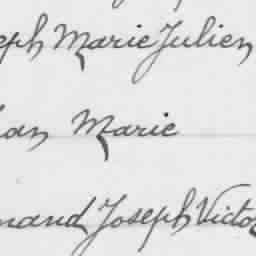 eph Marie Julien
an Marie
mand Joseph Victo